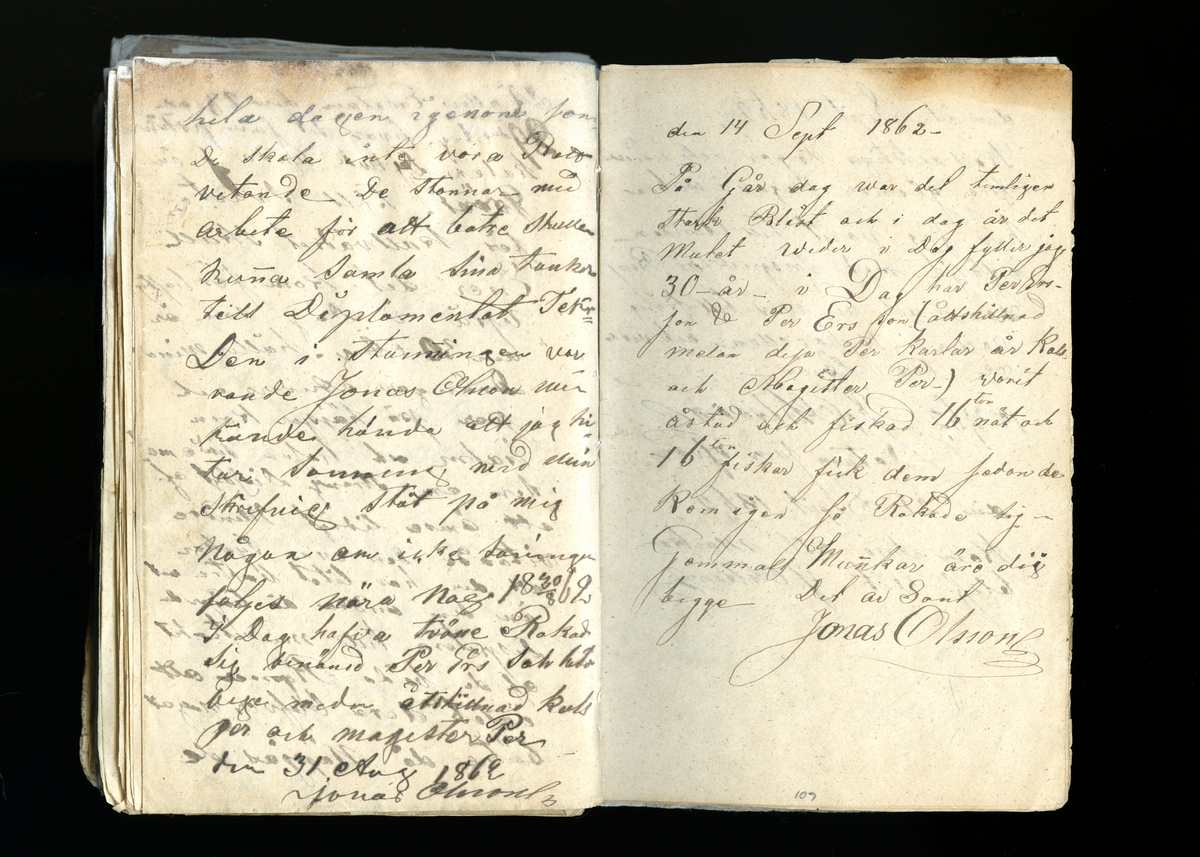 hela dagen igenom som
De skola inte vara Rått
vetande De stannar med
arbete för att bätre skulle
kuña samla sina tankar
till Diplomentat
Den i Stamningen var
rande Jonas Olsson
tande hända att jag hi
tar med min
skrifning stöt på mig
Någon om icke
följes nära nog 18 30/8 62
I Dag hafva tväne Rakad
Sig Per Ers
åttskillnad kals
per och magister Per
den 31 Aug 1862
Jonas Olsson
den 14 Sept 1862-
På Går dag war det temligen
stark Blåst och i dag är det
Mulet wäder i Dag fyller jag
30-år- i Dag har Per Ers-
son & Per Ers son (åttskillnad
melan desa Per karlar är Kals
och Magister Per-) varit
åstad och fiskad 16 ton nät och
16 ton fiskar fick dem sedan de
kom igen så Rakade sig-
Gammals Muñkar äro dig
begge Det är Sant
Jonas Olsson
109